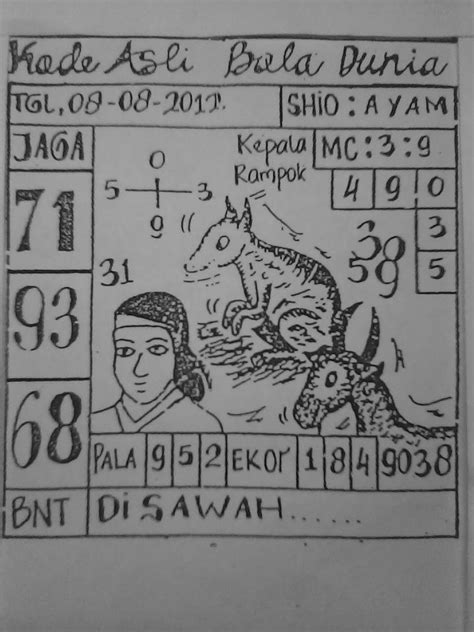 Kode Asli Bola Dunia
TGL, 08-08-2012. SHiO : AYAM
JAGA
71
93
68
0
5 3
9
31
Kepala
Rampok
MC : 3 : 9
4 9 0
3
5
38
59
PALA 9 5 2 EKOr 1 8 4 9038
BNT Di SAWAH......